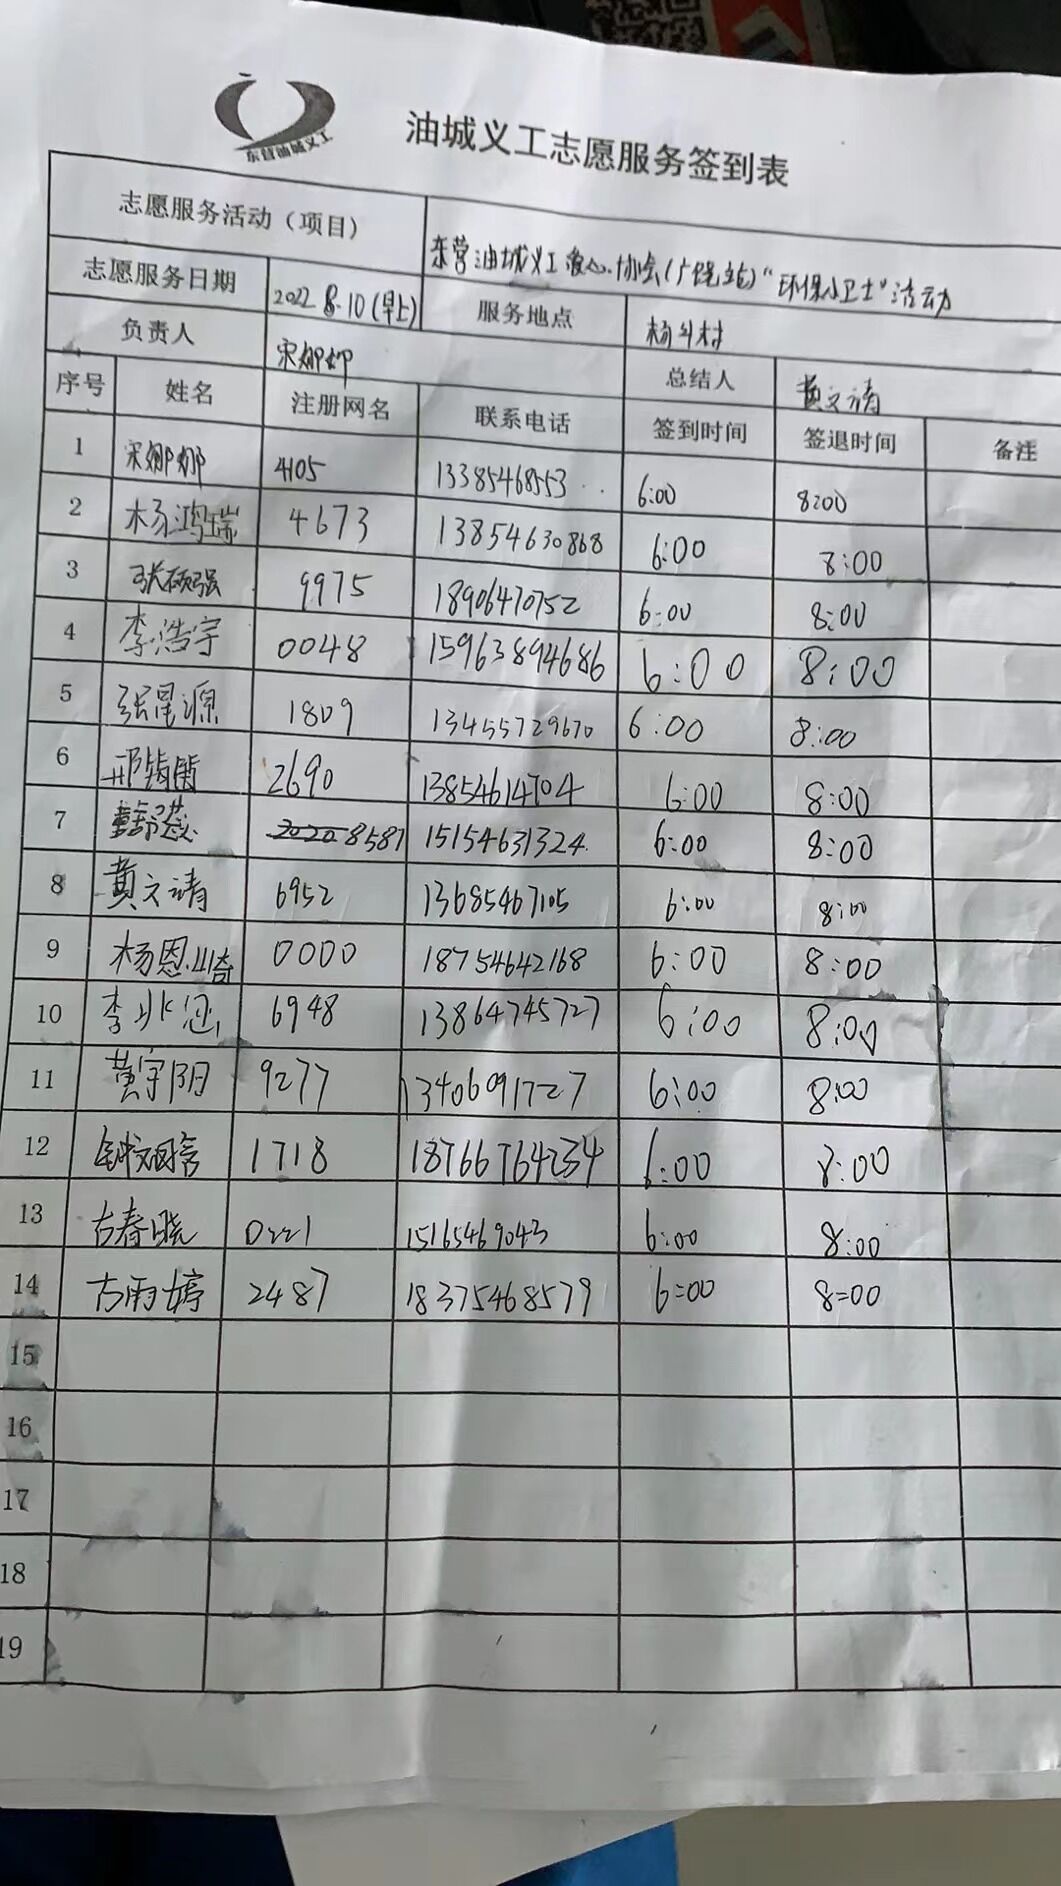 东营油城义工
油城义工志愿服务签到表
志愿服务活动（项目） 东营油城义工爱心协会(广饶站)"环保小卫士"活动
志愿服务日期 2022 8.10(早上) 服务地点 杨斗村
负责人 宋娜娜 总结人 黄文清
序号 姓名 注册网名 联系电话 签到时间 签退时间 备注
1 宋娜娜 4105 13385468553 6:00 8:00
2 杨鸿瑞 4673 13854630868 6:00 8:00
3 张硕强 9975 18906470752 6:00 8:00
4 李浩宇 0048 15963894686 6:00 8:00
5 张星源 1809 13455729670 6:00 8:00
6 2690 13854614704 6:00 8:00
7 8587 15154631324 6:00 8:00
8 黄文清 6952 13685467105 6:00 8:00
9 杨恩琦 0000 18754642168 6:00 8:00
10 李 6948 13864745727 6:00 8:00
11 黄宇阳 9277 13406091727 6:00 8:00
12 1718 18766764234 6:00 8:00
13 古春晓 0221 15165469043 6:00 8:00
14 古雨婷 2487 18375468579 6=00 8=00
15
16
17
18
19